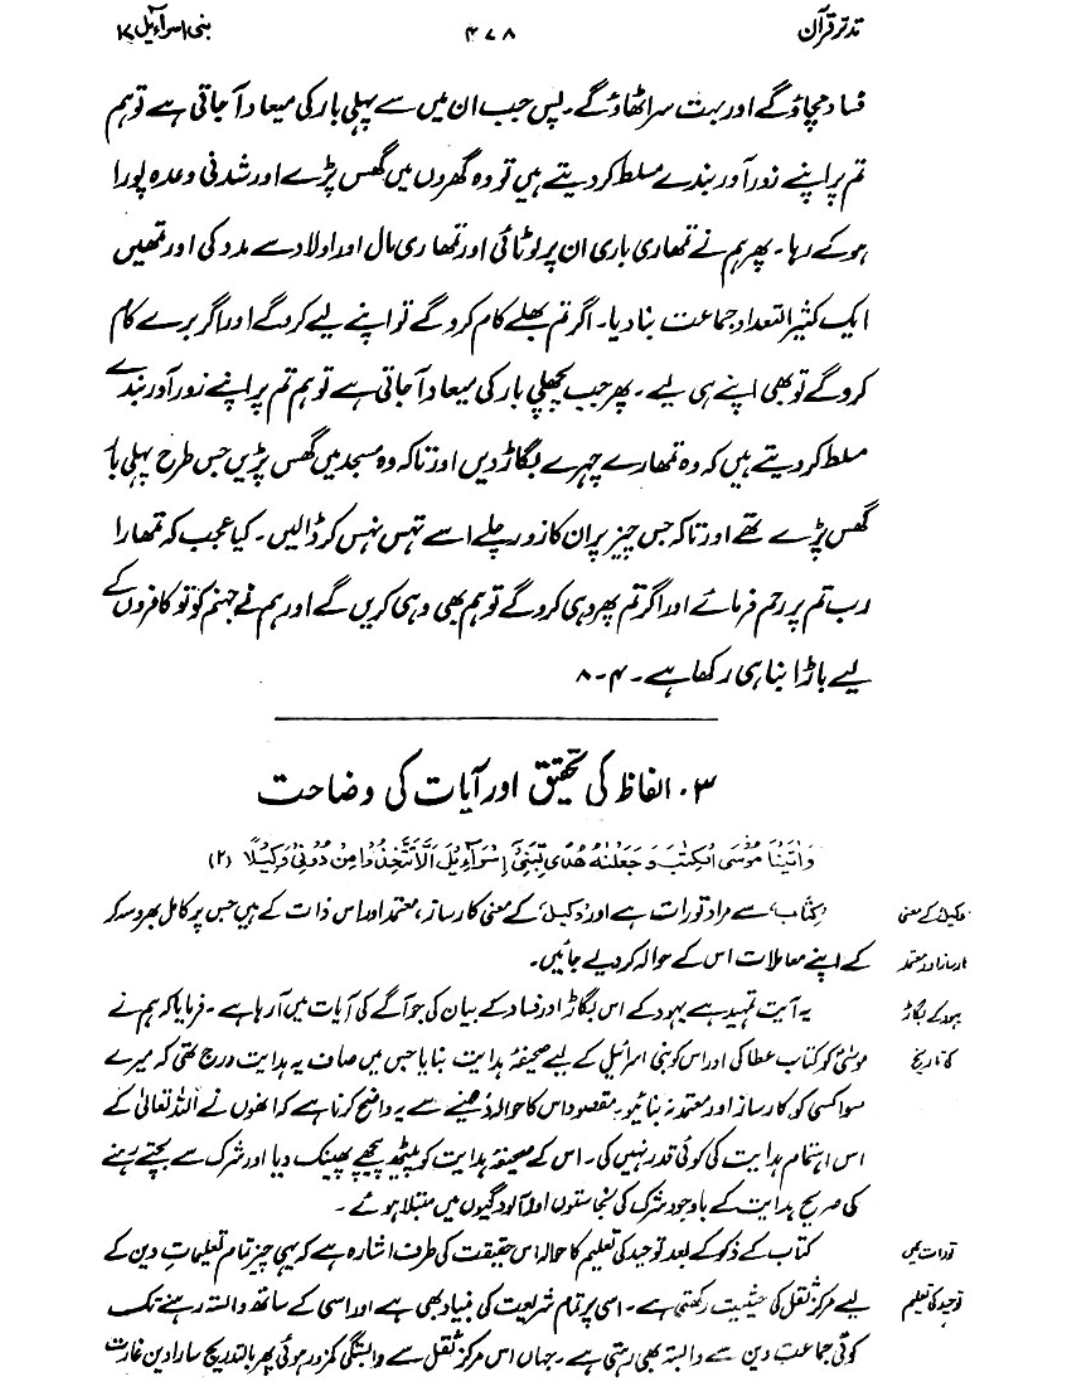 تدبر قرآن ۴۷۸ بنی اسرآءیل ۱۷
فساد مچاؤ گے اور بہت سر اٹھاؤ گے۔ پس جب ان میں سے پہلی بار کی میعاد آ جاتی ہے تو ہم
تم پر اپنے زور آور بندے مسلط کر دیتے ہیں تو وہ گھروں میں گھس پڑے اور شدنی وعدہ پورا
ہو کے رہا۔ پھر ہم نے تمھاری باری ان پر لوٹائی اور تمھاری مال اور اولاد سے مدد کی اور تمھیں
ایک کثیر التعداد جماعت بنا دیا۔ اگر تم بھلے کام کرو گے تو اپنے لیے کرو گے اور اگر برے کام
کرو گے تو بھی اپنے ہی لیے۔ پھر جب پچھلی بار کی میعاد آ جاتی ہے تو ہم تم پر اپنے زور آور بندے
مسلط کر دیتے ہیں کہ وہ تمھارے چہرے بگاڑ دیں اور تاکہ وہ مسجد میں گھس پڑیں جس طرح پہلی بار
گھس پڑے تھے اور تاکہ جس چیز پر ان کا زور چلے اسے تہس نہس کر ڈالیں۔ کیا عجب کہ تمھارا
رب تم پر رحم فرمائے اور اگر تم پھر وہی کرو گے تو ہم بھی وہی کریں گے اور ہم نے جہنم کو تو کافروں کے
لیے باڑا بنا ہی رکھا ہے۔ ۴-۸
۳۔ الفاظ کی تحقیق اور آیات کی وضاحت
وَاٰتَيْنَا مُوْسَى الْكِتٰبَ وَجَعَلْنٰهُ هُدًى لِّبَنِيْٓ اِسْرَآءِيْلَ اَلَّا تَتَّخِذُوْا مِنْ دُوْنِيْ وَكِيْلًا (۲)
’کِتَاب‘ سے مراد تورات ہے اور ’وکیل‘ کے معنی کارساز، معتمد اور اس ذات کے ہیں جس پر کامل بھروسہ کر
وکیل کے معنی
کے اپنے معاملات اس کے حوالہ کر دیے جائیں۔
کارساز اور معتمد
یہ آیت تمہید ہے یہود کے اس بگاڑ اور فساد کے بیان کی جو آگے کی آیات میں آ رہا ہے۔ فرمایا کہ ہم نے
یہود کے بگاڑ
موسیٰؑ کو کتاب عطا کی اور اس کو بنی اسرائیل کے لیے صحیفۂ ہدایت بنایا جس میں صاف یہ ہدایت درج تھی کہ میرے
کی تاریخ
سوا کسی کو کارساز اور معتمد نہ بنائیو۔ مقصود اس کا حوالہ دینے سے یہ واضح کرنا ہے کہ انھوں نے اللہ تعالیٰ کے
اس اہتمام ہدایت کی کوئی قدر نہیں کی۔ اس کے صحیفۂ ہدایت کو پیٹھ پیچھے پھینک دیا اور شرک سے بچتے رہنے
کی صریح ہدایت کے باوجود شرک کی نجاستوں اور آلودگیوں میں مبتلا ہوئے۔
کتاب کے ذکر کے بعد توحید کی تعلیم کا حوالہ اس حقیقت کی طرف اشارہ ہے کہ یہی چیز تمام تعلیمات دین کے
تورات میں
لیے مرکز ثقل کی حیثیت رکھتی ہے۔ اسی پر تمام شریعت کی بنیاد بھی ہے اور اسی کے ساتھ وابستہ رہنے تک
توحید کی تعلیم
کوئی جماعت دین سے وابستہ بھی رہتی ہے۔ جہاں اس مرکز ثقل سے وابستگی کمزور ہوئی پھر بالتدریج سارا دین غارت